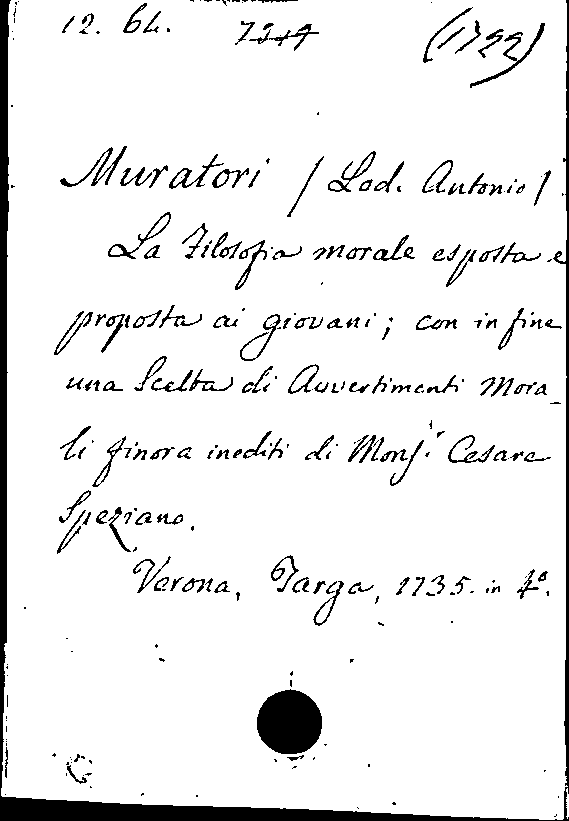 12. 64. 7249 (1722)
Muratori / Lod. Antonio /
La Filosofia morale esposta e
proposta ai giovani; con in fine
una Scelta di Avvertimenti Mora_
li finora inediti di Monsr. Cesare
Speziano.
Verona, Targa, 1735. in 4º.